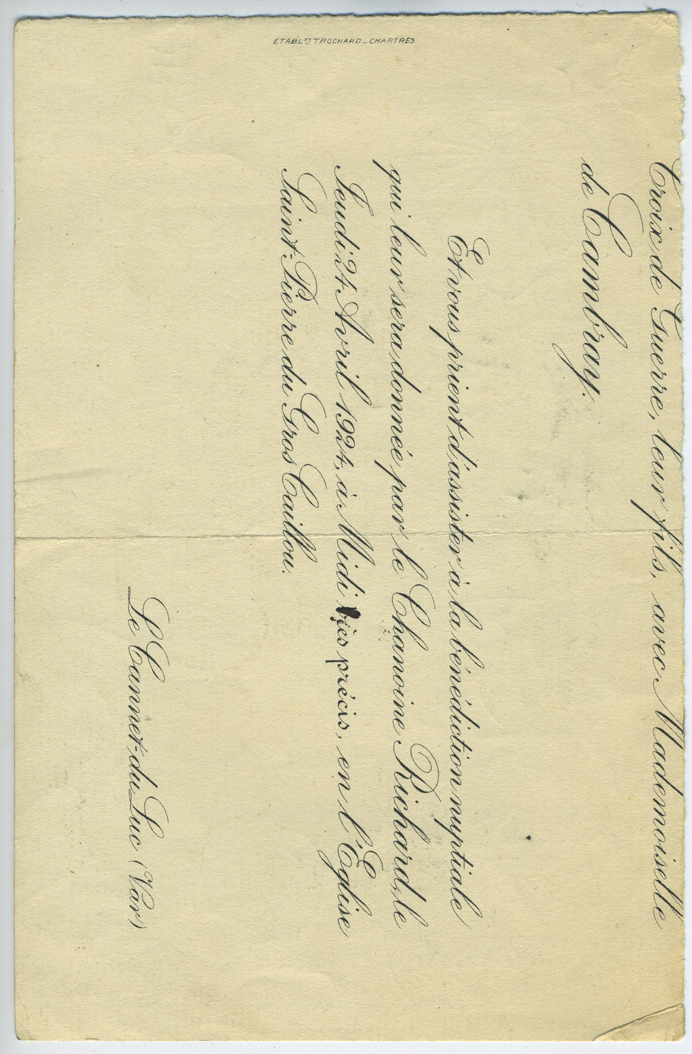 Croix de Guerre, leur fils, avec Mademoiselle
de Cambray.
Et vous prient d'assister à la bénédiction nuptiale
qui leur sera donnée par le Chanoine Richard, le
Jeudi 24 Avril 1924, à Midi très précis, en l'Église
Saint-Pierre du Gros Caillou.
Le Cannet-du-Luc (Var)
ÉTABLTS TROCHARD_CHARTRES